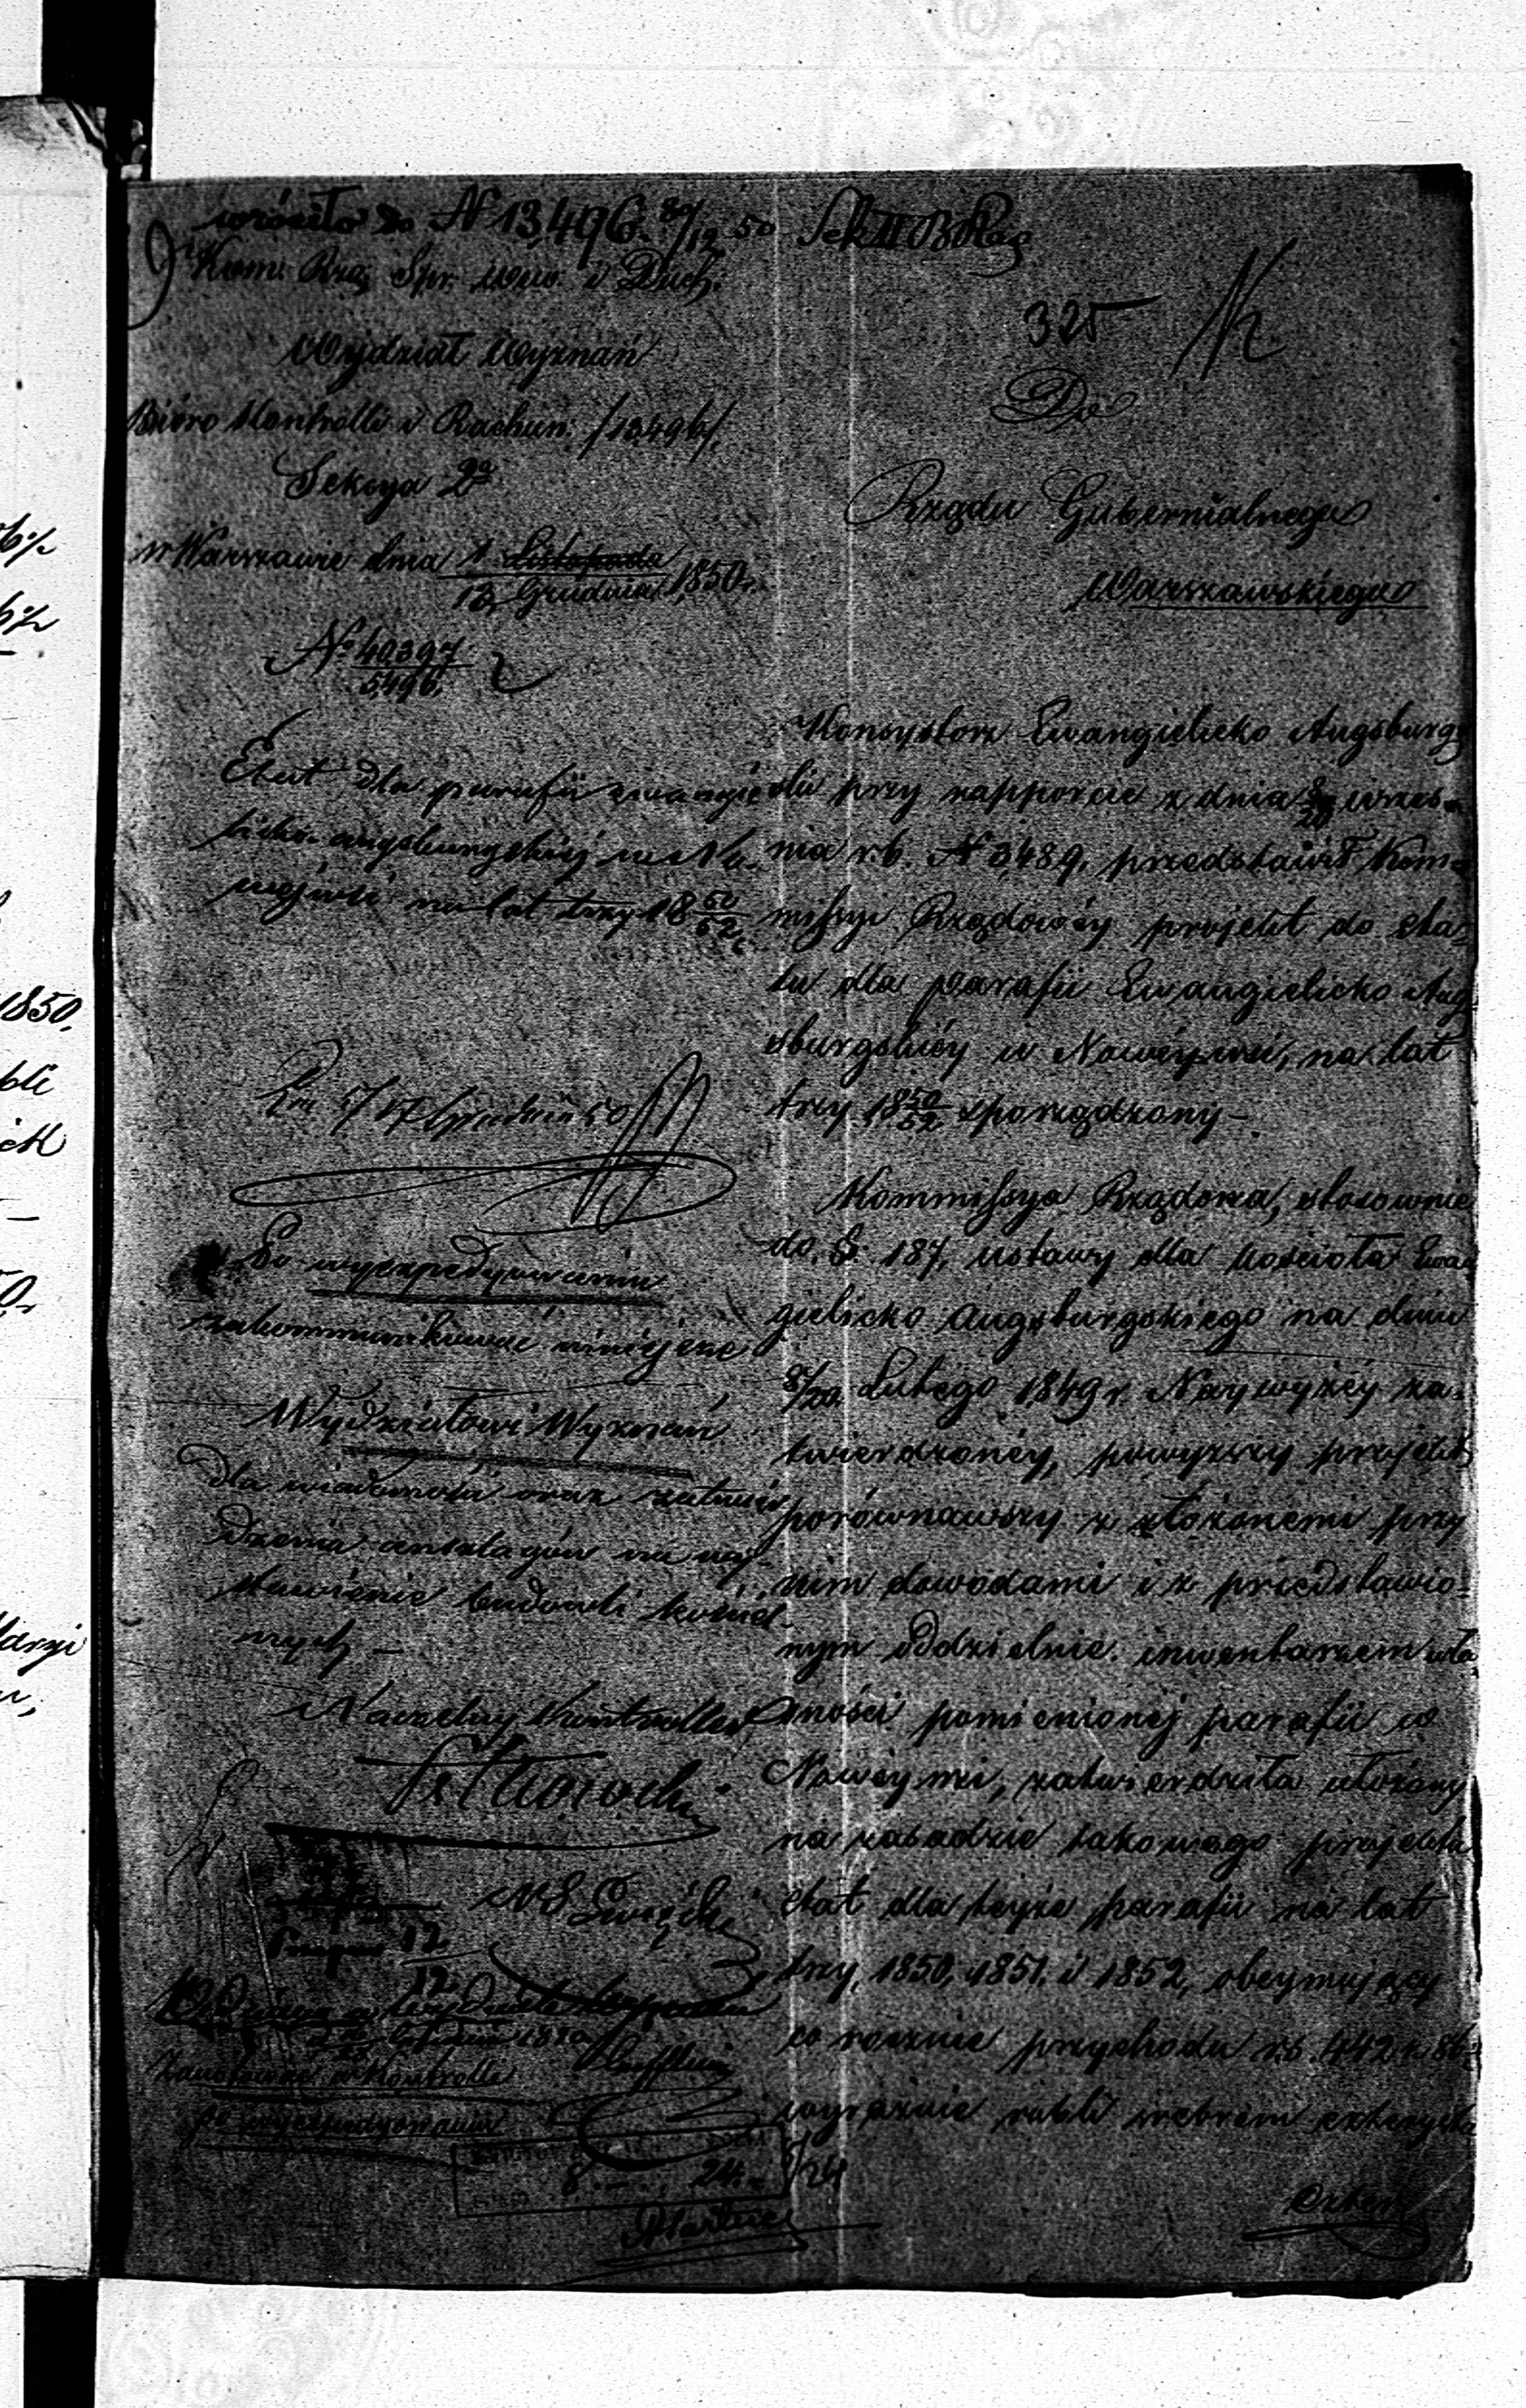 wróciło do N 13,496. 8/12 50 Sek II
Kom: Rzą: Spr. Wew. i Duch.
Wydział Wyznań
Bióro Kontrolli i Rachun: /13496/.
Sekcya 2ª
w Warszawie dnia 1 Listopada / 13 Grudnia 1850 r.
Nº 40397 / 5496
Etat dla parafii ewangie
licko-augsburgskiéj w No-
wejwsi na lat trzy 18 50/52.
5/17 Grudnia 50
Po wyexpedyowaniu
zakommunikować niniejsze
Wydziałowi Wyznań
dla wiadomości oraz zatwier
dzenia anszlagów na wy-
stawienie budowli kościel-
nych —
Naczelny Kontroller
12/12
Zanotowano w Kontrolli
po wyexpedyowaniu
8. — 24. —
325
Do
Rządu Gubernialnego
Warszawskiego
Konsystorz Ewangielicko Augsburg
ski przy rapporcie z dnia 8/20 wrześ-
nia r. b. N 3,489, przedstawił Kom-
missyi Rządowéy projekt do eta-
tu dla parafii Ewangielicko Aug-
sburgskiéy w Nowéywsi, na lat
trzy 18 50/52 sporządzony —
Kommissya Rządowa, stosownie
do §: 187, ustawy dla kościoła Ewan
gielicko Augsburgskiego na dniu
8/20 Lutego 1849 r. Naywyżéy za-
twierdzonéy, powyższy projekt
porównawszy z złożonemi przy
nim dowodami i z przedstawio-
nym oddzielnie inwentarzem wła
sności pomienionéj parafii w
Nowéywsi, zatwierdziła ułożony
na zasadzie takowego projektu
etat dla teyże parafii na lat
trzy, 1850, 1851. i 1852, obeymujący
co rocznie przychodu rs. 442 k 86
wyraźnie rubli srebrem czterysta